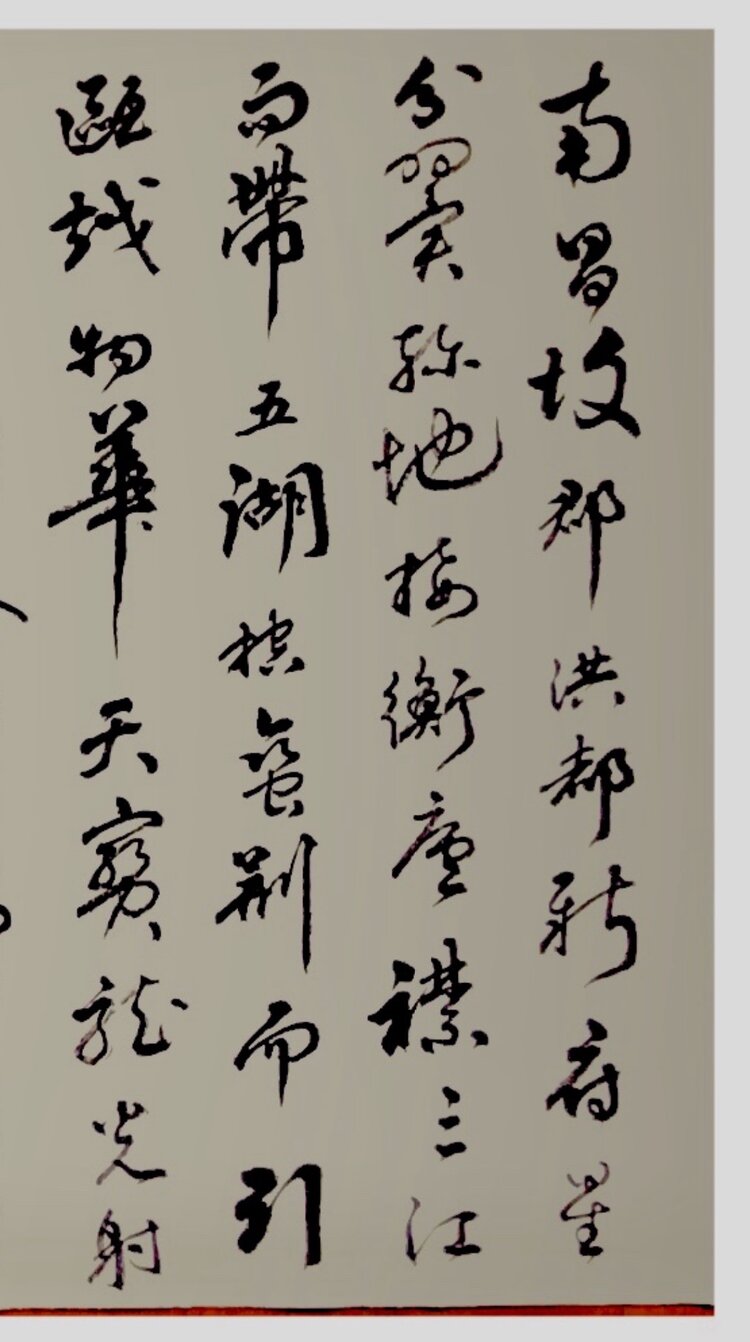 南昌故郡洪都新府星
分翼軫地接衡廬襟三江
而帶五湖控蠻荊而引
甌越物華天寶龍光射